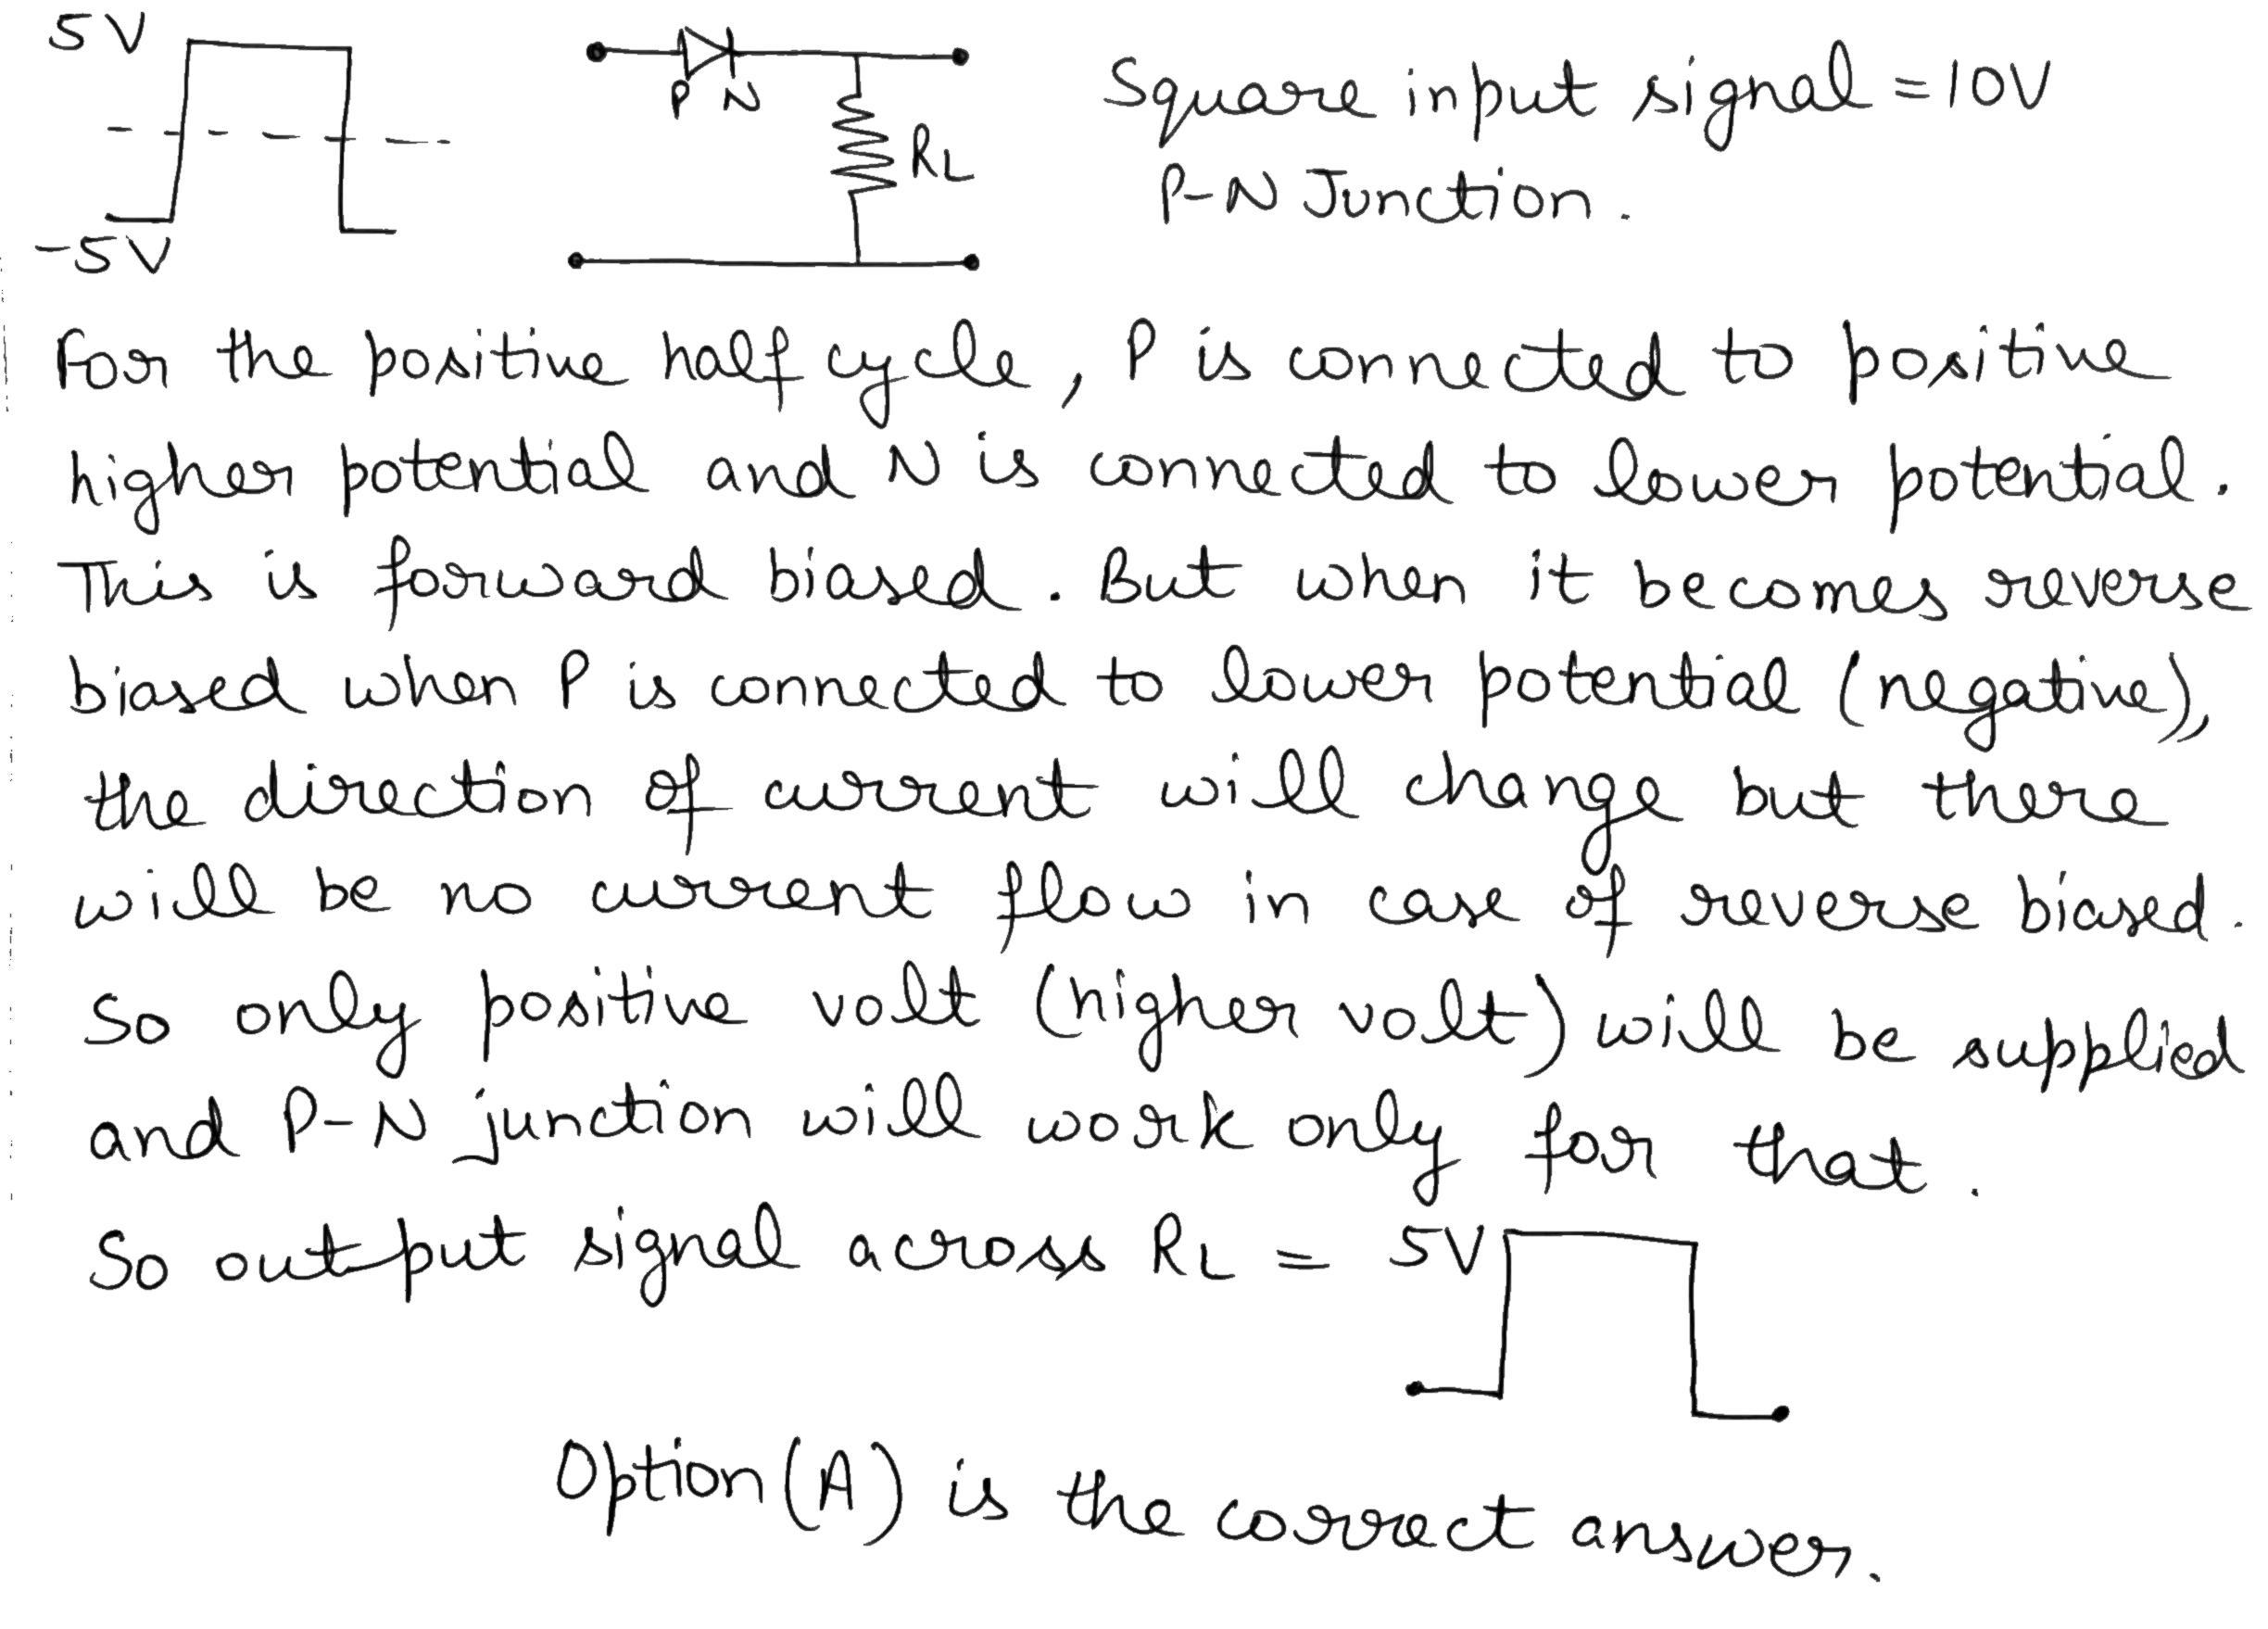 5V
P N
RL
-5V
Square input signal = 10V
P-N Junction.
For the positive half cycle, P is connected to positive
higher potential and N is connected to lower potential.
This is forward biased. But when it becomes reverse
biased when P is connected to lower potential (negative),
the direction of current will change but there
will be no current flow in case of reverse biased.
So only positive volt (higher volt) will be supplied
and P-N junction will work only for that.
So output signal across RL = 5V
Option (A) is the correct answer.